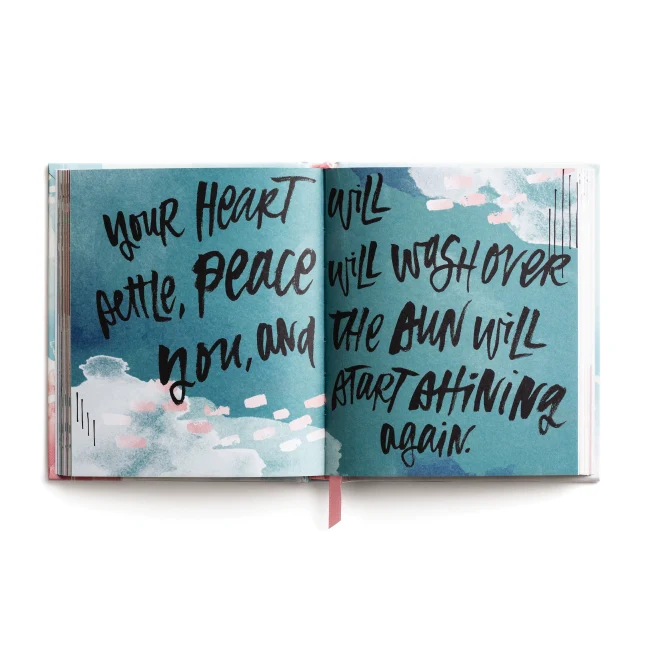 your HEART will
settle, peace will wash over
you, and THE SUN will
START SHINING
again.